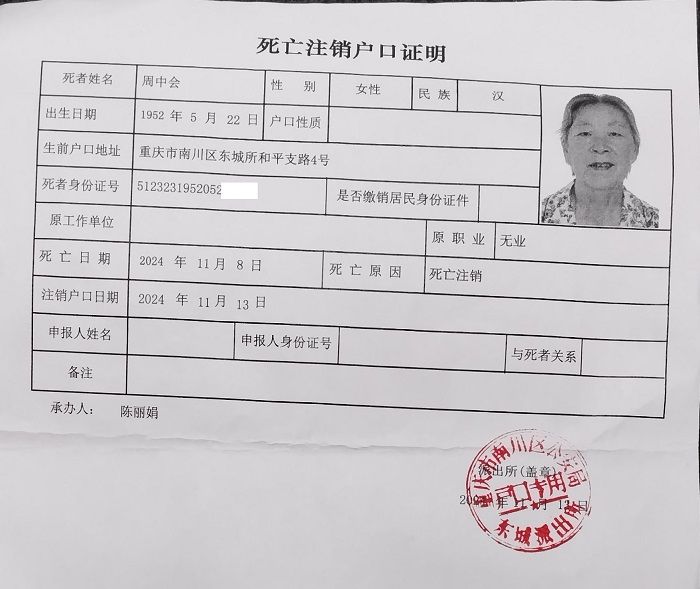 死亡注销户口证明
死者姓名 周中会 性 别 女性 民族 汉
出生日期 1952 年 5 月 22 日 户口性质
生前户口地址 重庆市南川区东城所和平支路4号
死者身份证号 5123231952052 是否缴销居民身份证件
原工作单位 原职业 无业
死亡日期 2024 年 11月 8 日 死亡原因 死亡注销
注销户口日期 2024 年 11月 13 日
申报人姓名 申报人身份证号 与死者关系
备注
承办人： 陈丽娟
重庆市南川区公安局
派出所(盖章)
户口专用
年11月13日
东城派出所